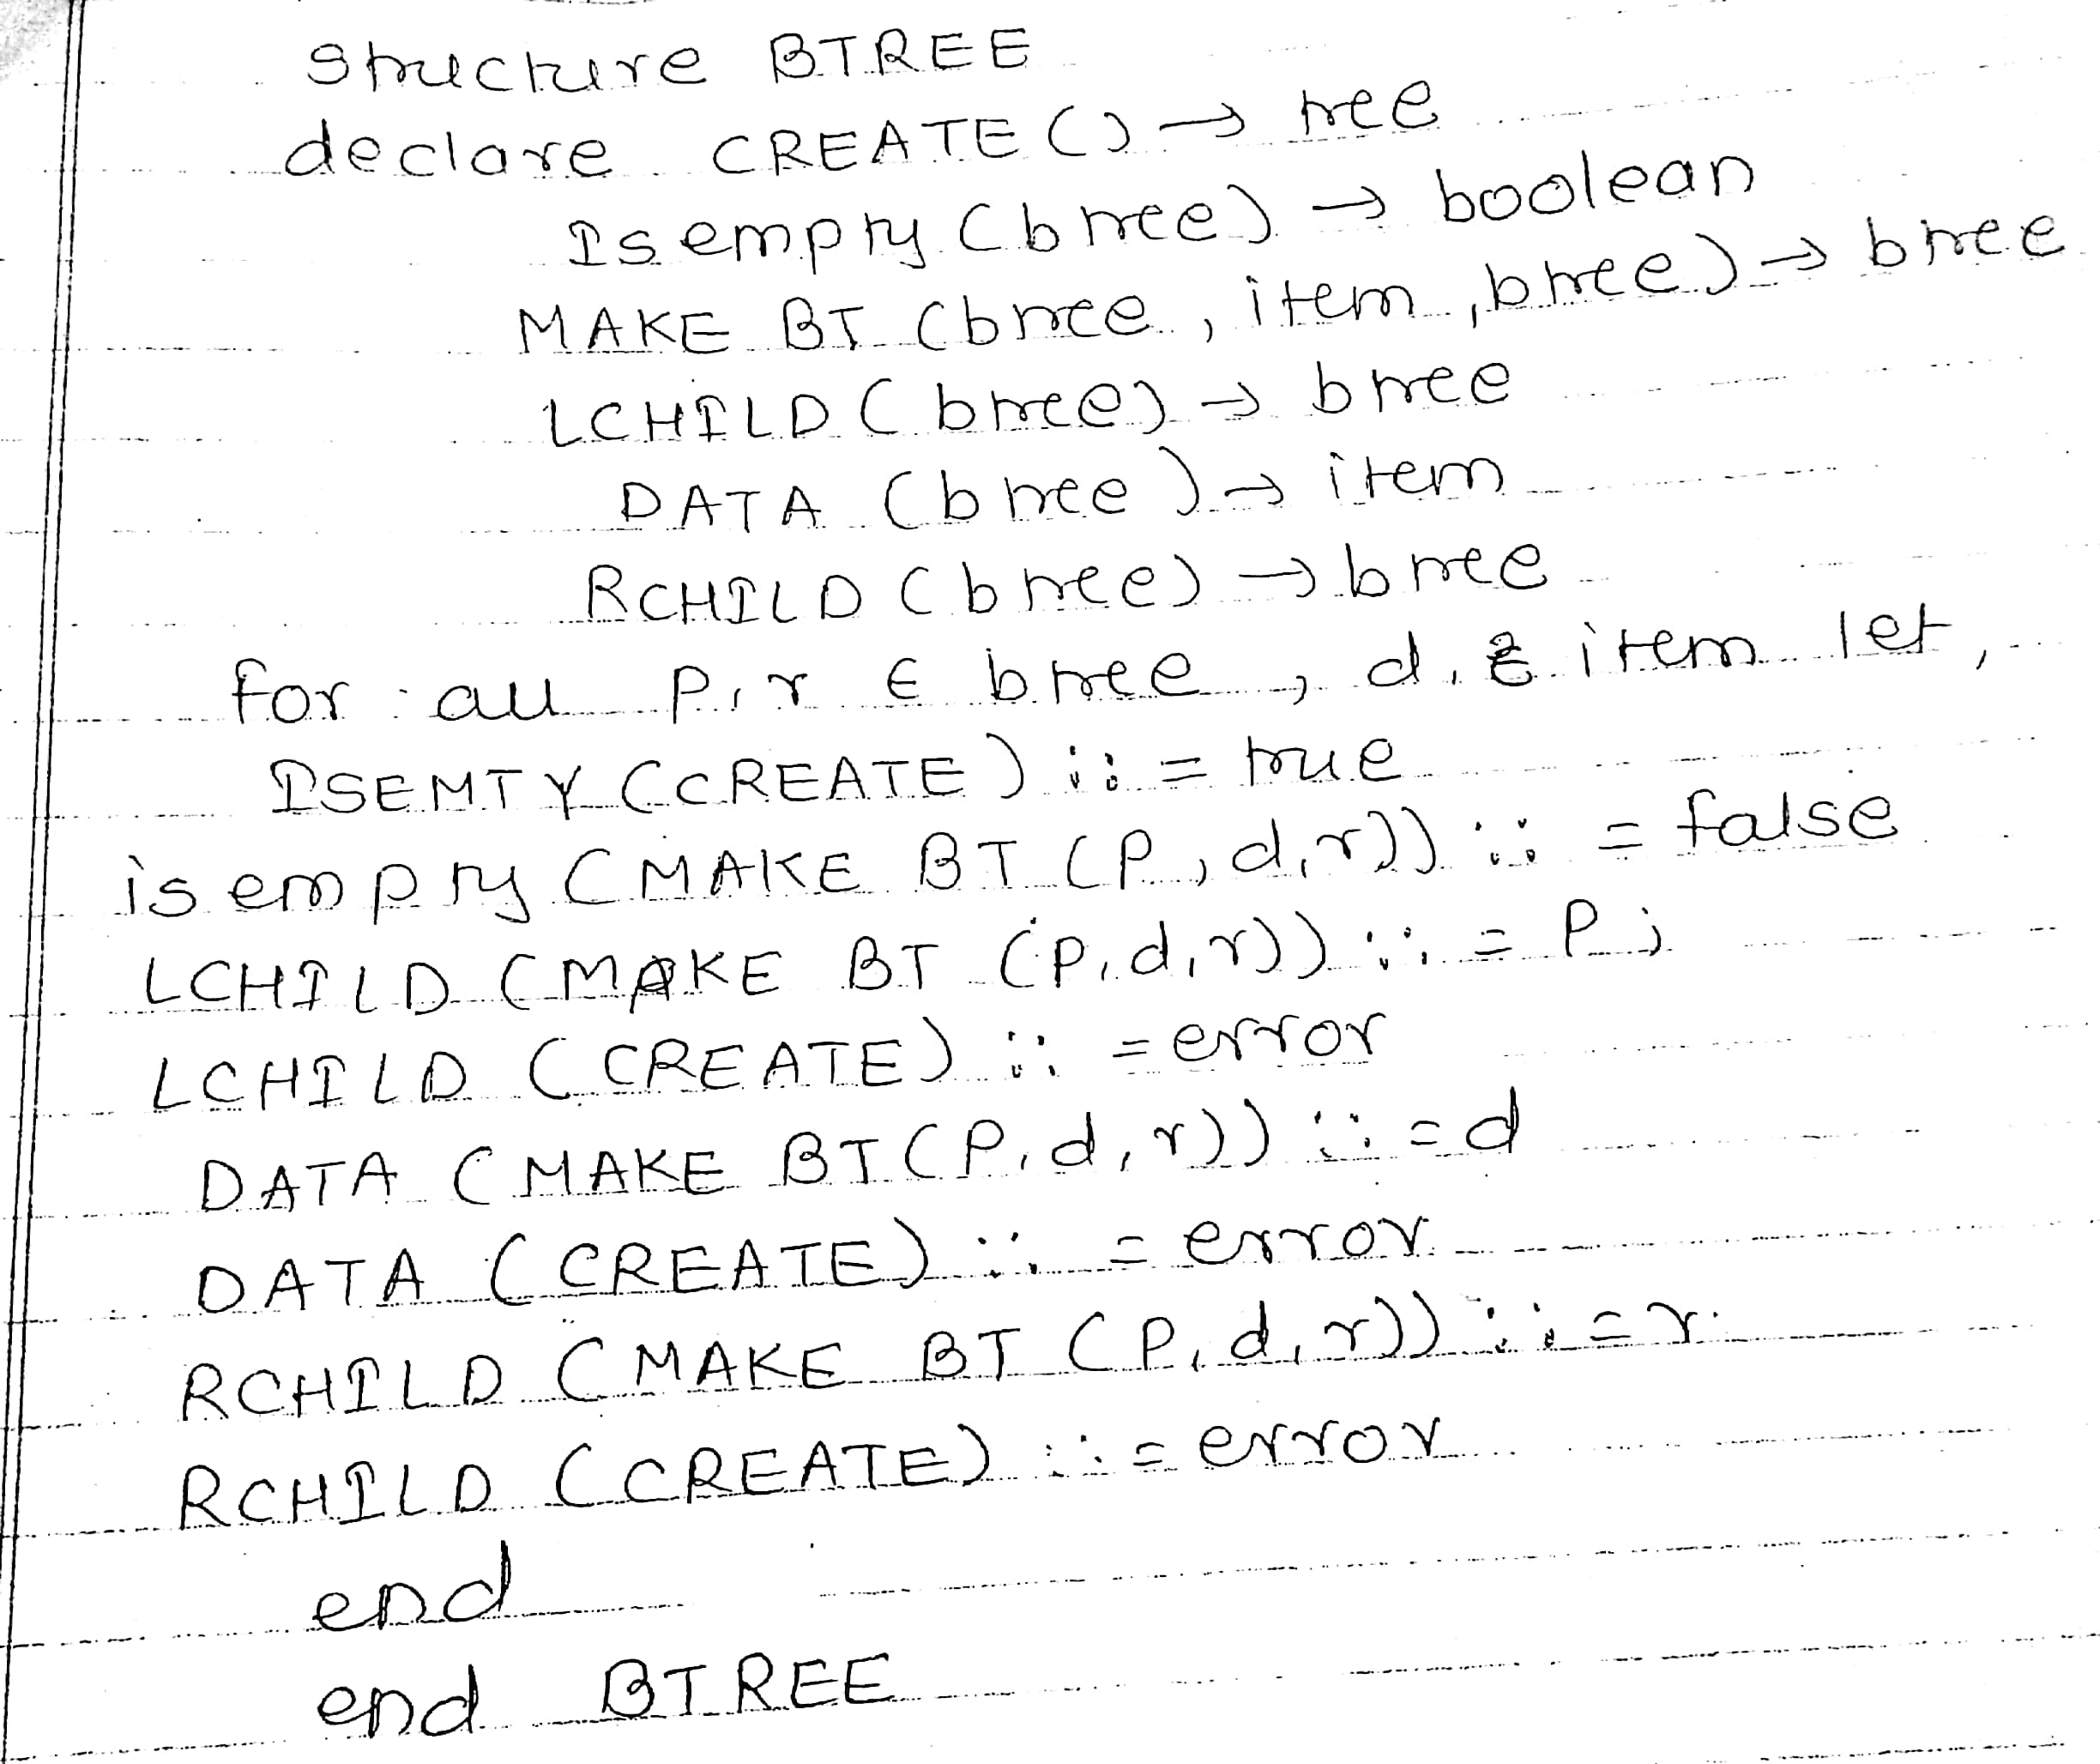 structure BTREE
declare CREATE () → tree
Isempty (btree) → boolean
MAKE BT (btree, item, btree) → btree
LCHILD (btree) → btree
DATA (btree) → item
RCHILD (btree) → btree
for all p, r ∈ btree, d, ε item let,
ISEMTY (CREATE) ::= true
isempty (MAKE BT (P, d, r)) ::= false
LCHILD (MAKE BT (p, d, r)) ::= P;
LCHILD (CREATE) ::= error
DATA (MAKE BT (P, d, r)) ::= d
DATA (CREATE) ::= error
RCHILD (MAKE BT (P, d, r)) ::= r.
RCHILD (CREATE) ::= error
end
end BTREE